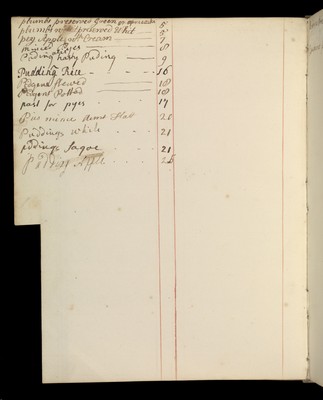 plumbs preserved Green 5
plumbs preserved Whit 5
pey Apple Cream 7
minced Pyes 8
Puding hasty Puding 9
Pudding Rice 16
Pidgons stewed 18
Pidgons Potted 18
past for pyes 17
Pies mince 20
Puddings white 21
pddings Sagoe 21
Pudding Apple